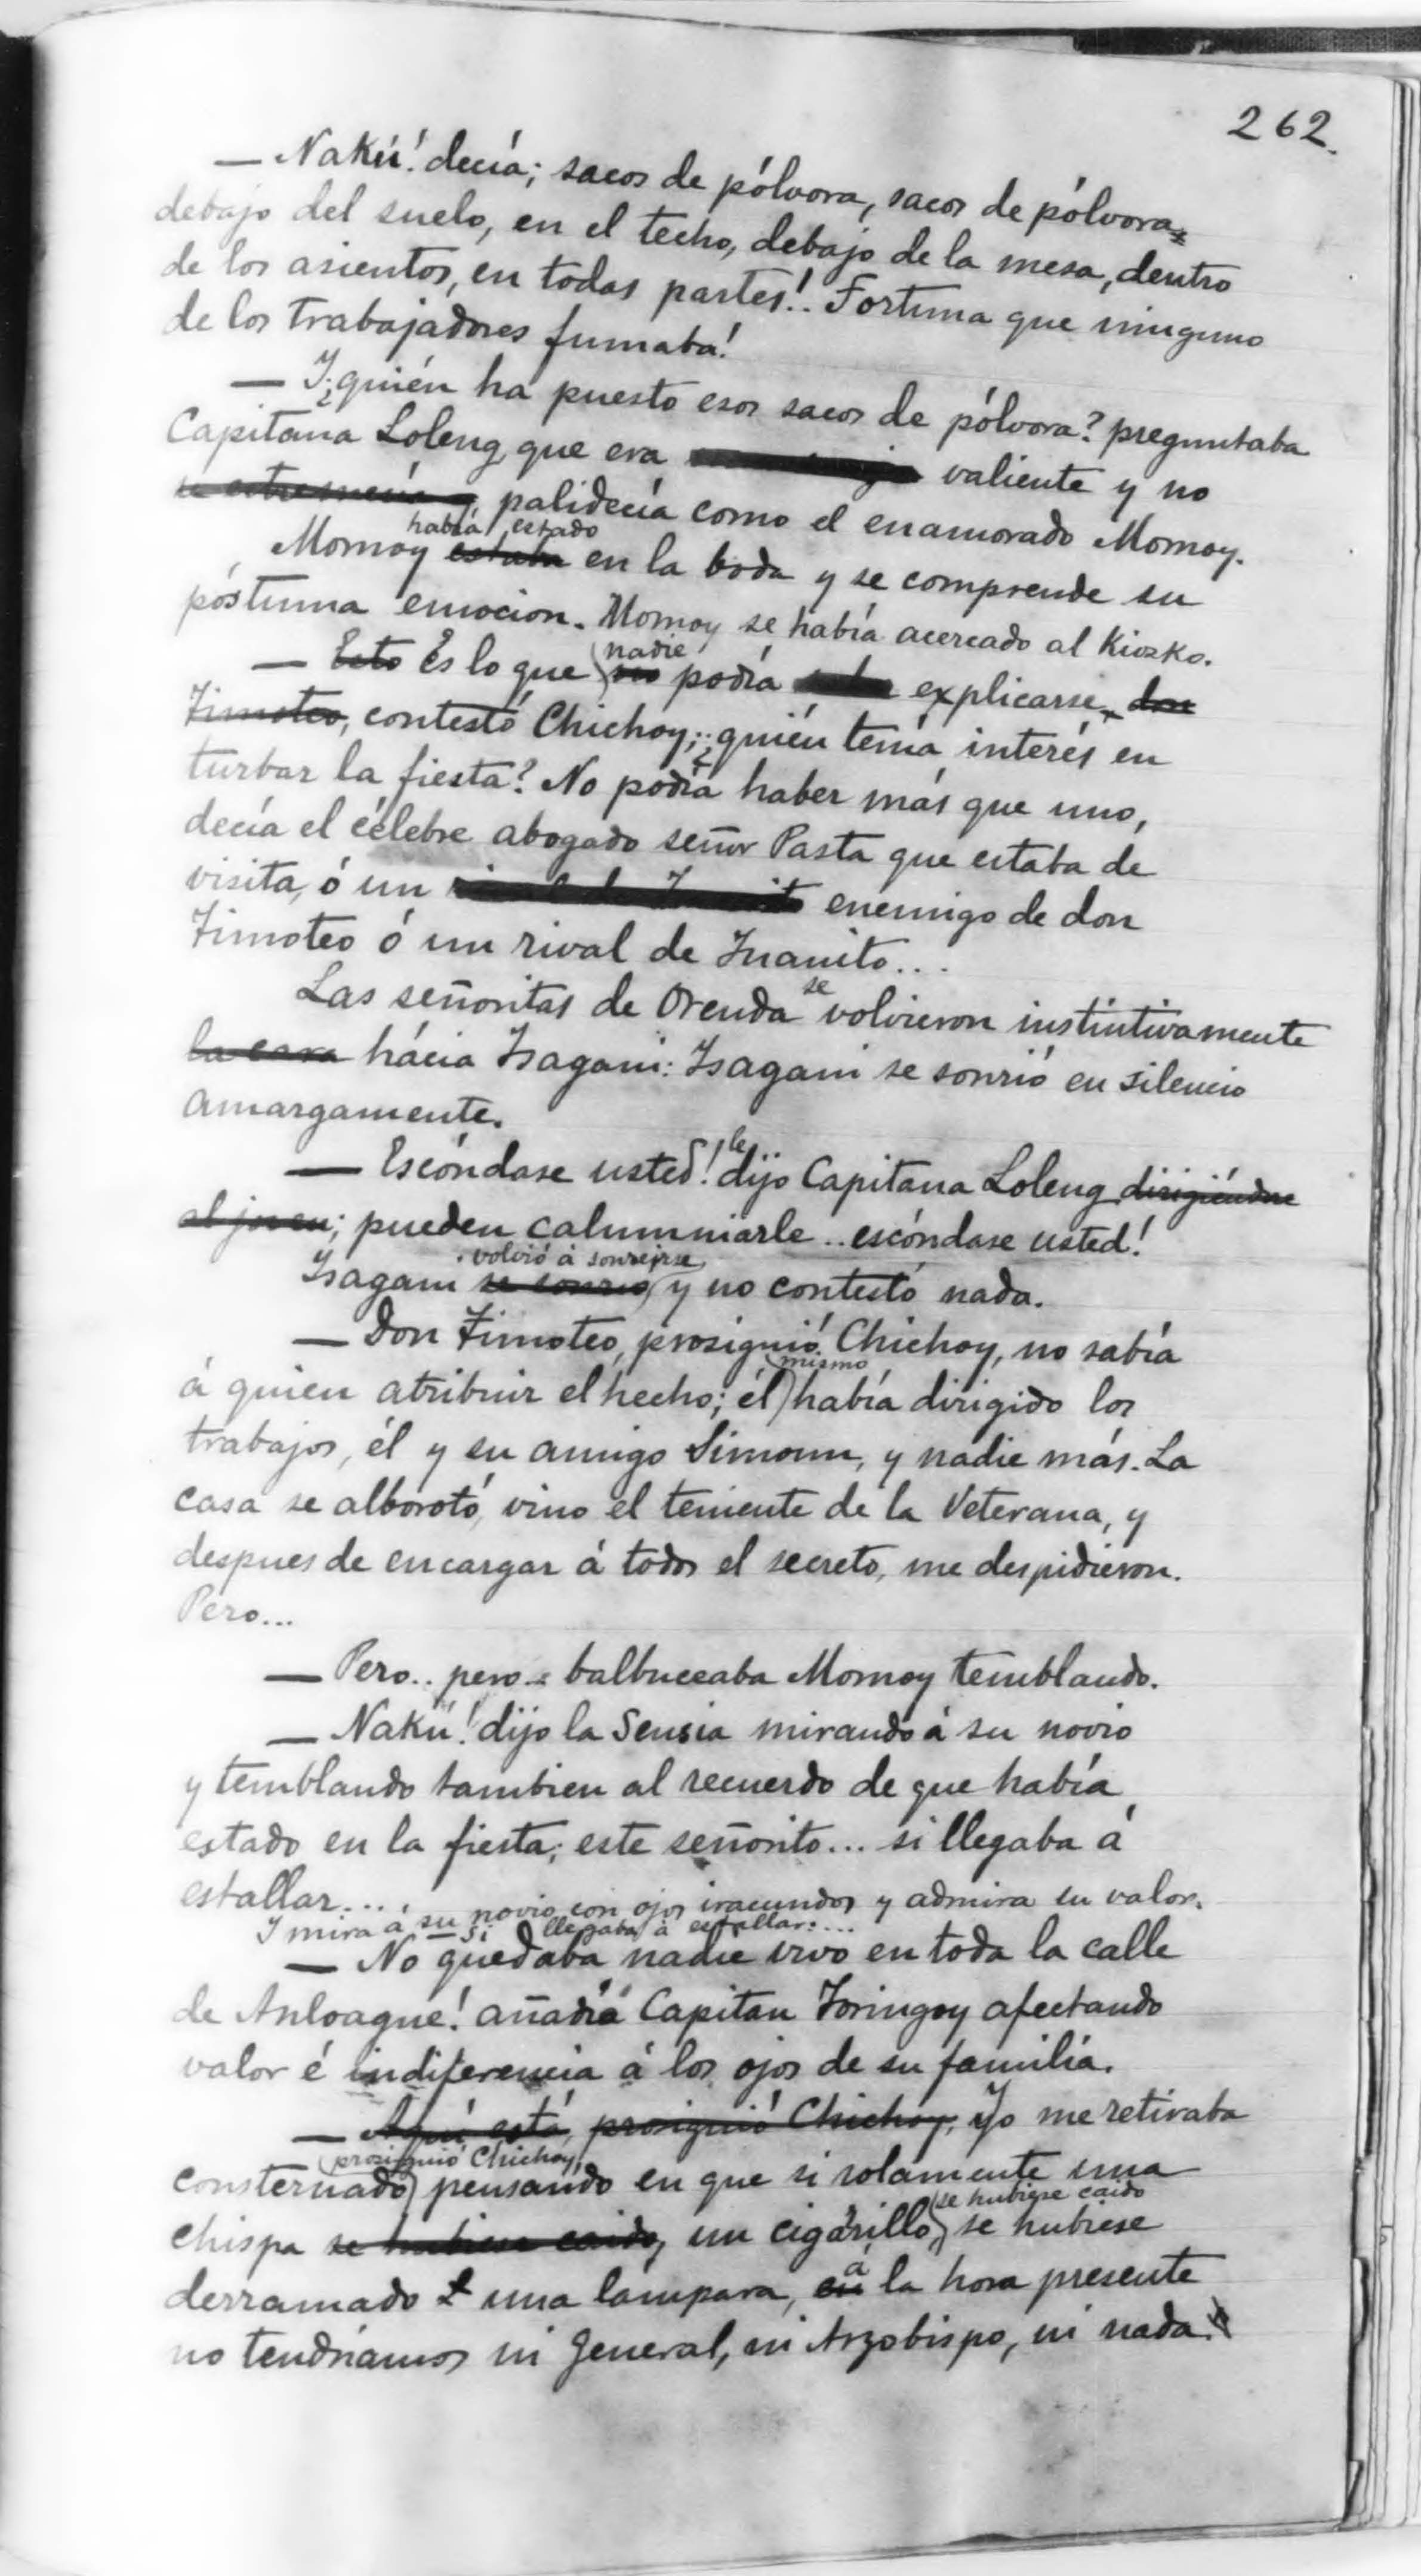 262.
— Nakú! decía; sacos de pólvora, sacos de pólvora
debajo del suelo, en el techo, debajo de la mesa, dentro
de los asientos, en todas partes!.. Fortuna que ninguno
de los trabajadores fumaba!
— Y ¿quién ha puesto esos sacos de pólvora? preguntaba
Capitana Loleng, que era valiente y no
palidecía como el enamorado Momoy.
había estado
Momoy estaba en la boda y se comprende su
póstuma emocion. Momoy se había acercado al Kiozko.
nadie
— Esto Es lo que no podía explicarse, don
Timoteo, contestó Chichoy; ¿quién tenía interés en
turbar la fiesta? No podía haber más que uno,
decía el célebre abogado señor Pasta que estaba de
visita, ó un enemigo de don
Timoteo ó un rival de Juanito...
se
Las señoritas de Orenda volvieron instintivamente
la cara hácia Isagani: Isagani se sonrió en silencio
amargamente.
le
— Escóndase usted! dijo Capitana Loleng dirigiéndose
al joven; pueden calumniarle.. escóndase usted!
volvió á sonreirse
Isagani se sonrió y no contestó nada.
— Don Timoteo, prosiguió Chichoy, no sabía
mismo
á quien atribuir el hecho; él había dirigido los
trabajos, él y su amigo Simoun, y nadie más. La
casa se alborotó, vino el teniente de la Veterana, y
despues de encargar á todos el secreto, me despidieron.
Pero...
— Pero.. pero.. balbuceaba Momoy temblando.
— Nakú! dijo la Sensia mirando á su novio
y temblando tambien al recuerdo de que había
estado en la fiesta; este señorito... si llegaba á
estallar...
Y mira á su novio con ojos iracundos y admira su valor.
— Si llegaba á estallar....
— No quedaba nadie vivo en toda la calle
de Anloague! añadía Capitan Toringoy afectando
valor é indiferencia á los ojos de su familia.
— Aquí está, prosiguió Chichoy, Yo me retiraba
prosiguió Chichoy,
consternado pensando en que si solamente una
se hubiese caido
chispa se hubiese caido, un cigarillo, se hubiese
derramado una lampara, en
á
la hora presente
no tendríamos ni General, ni Arzobispo, ni nada.